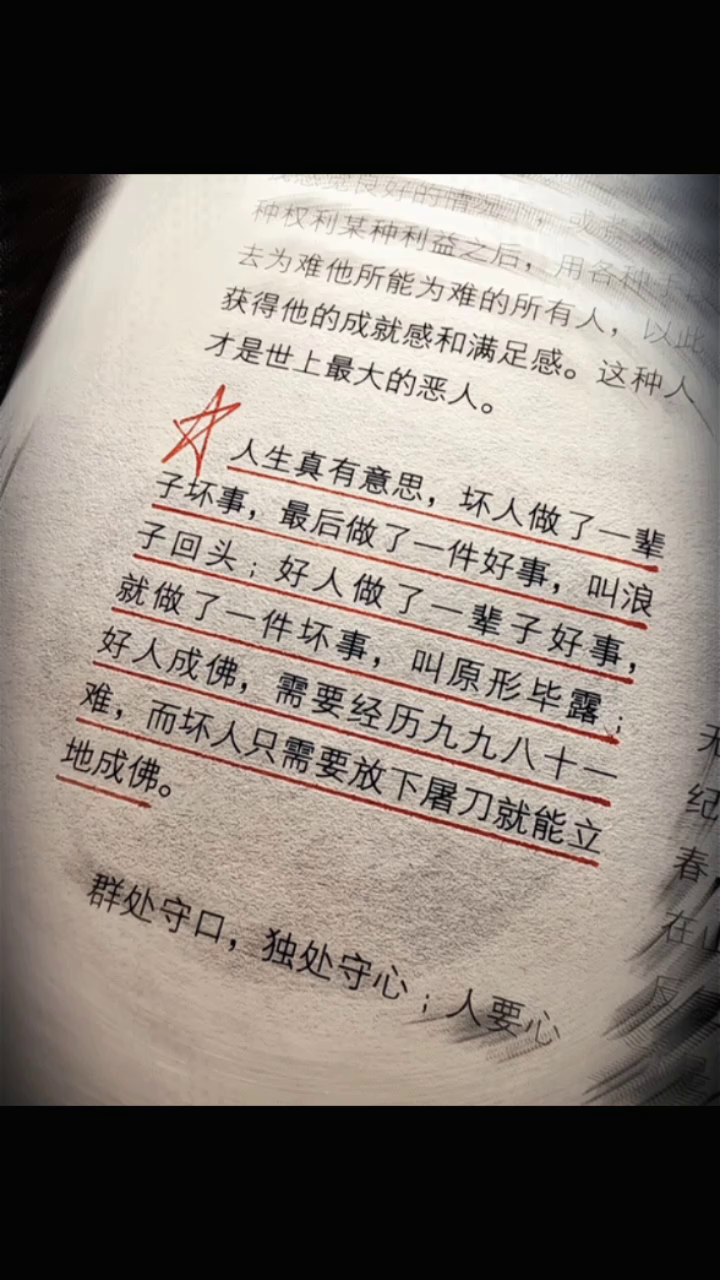 感觉良好的情况下，或者
种权利某种利益之后，用各种手段
去为难他所能为难的所有人，以此
获得他的成就感和满足感。这种人
才是世上最大的恶人。
人生真有意思，坏人做了一辈
子坏事，最后做了一件好事，叫浪
子回头；好人做了一辈子好事，
就做了一件坏事，叫原形毕露；
好人成佛，需要经历九九八十一
难，而坏人只需要放下屠刀就能立
地成佛。
群处守口，独处守心；人要心
纪
春
在山